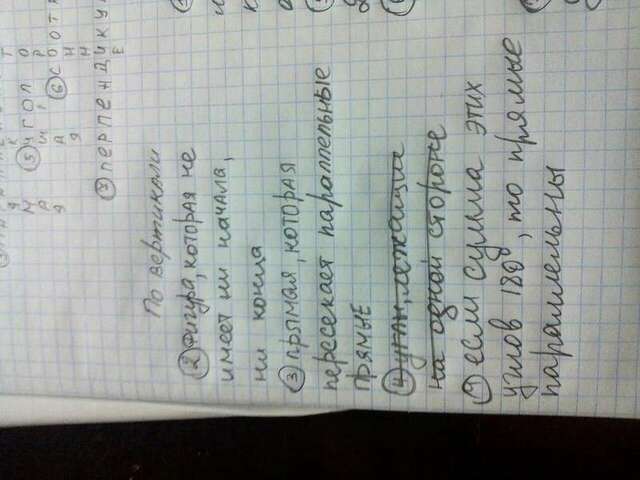 ⑤ угол ⑥
③ перпендику
По вертикали
② Фигура, которая не
имеет ни начала,
ни конца
③ прямая, которая
пересекает параллельные
прямые
④ углы, лежащие
на одной стороне
⑦ если сумма этих
углов 180°, то прямые
параллельны